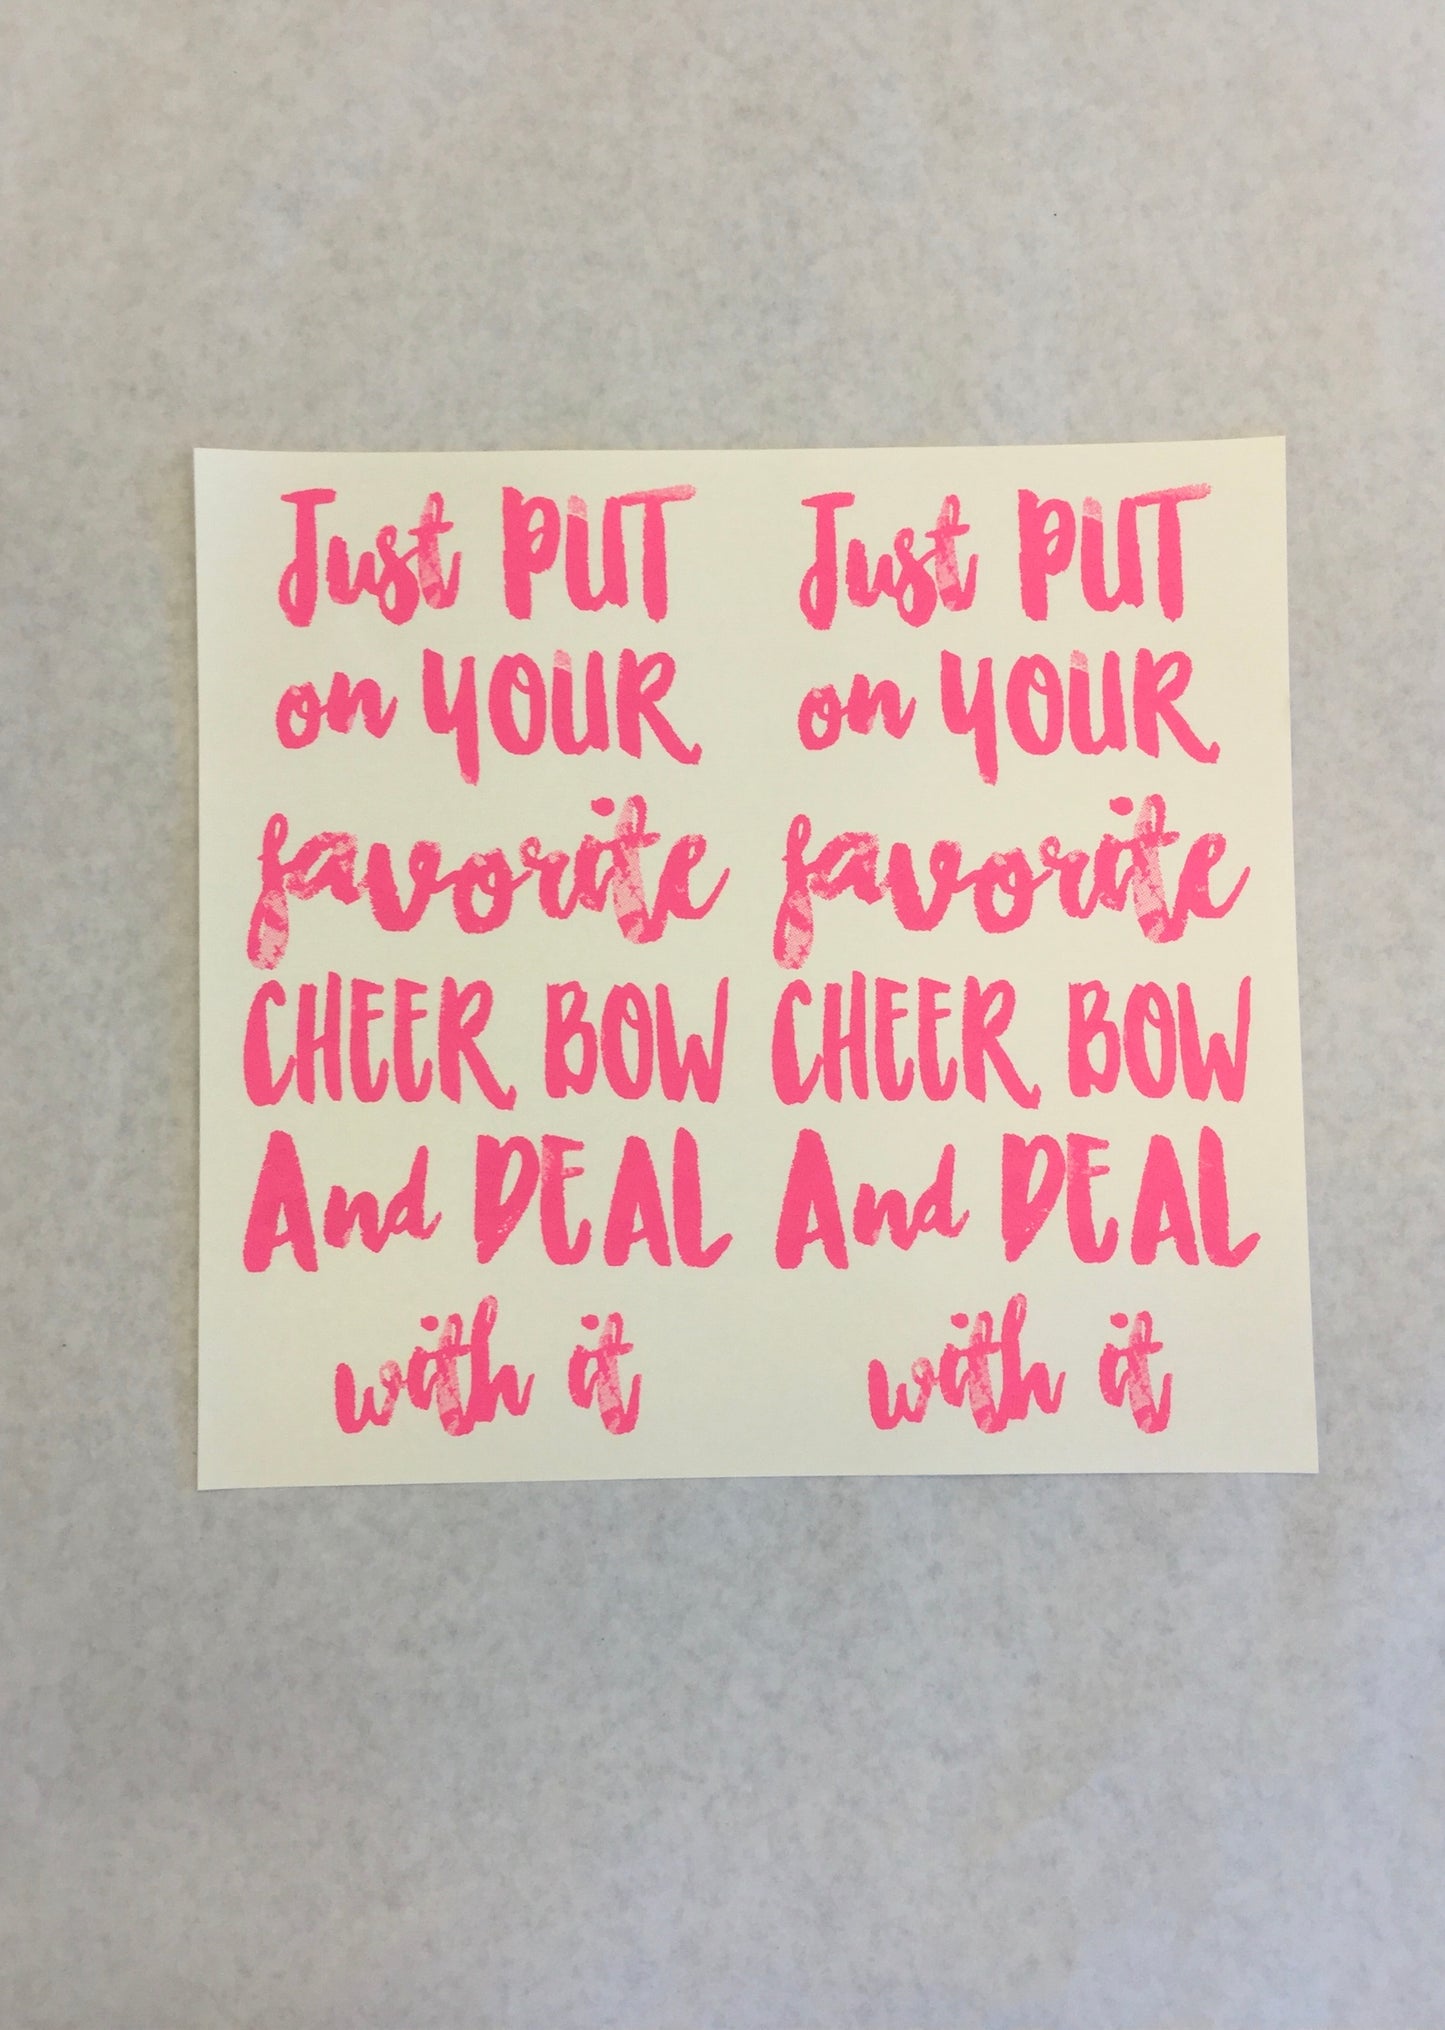 Just PUT
on YOUR
favorite
CHEER BOW
And DEAL
with it
Just PUT
on YOUR
favorite
CHEER BOW
And DEAL
with it